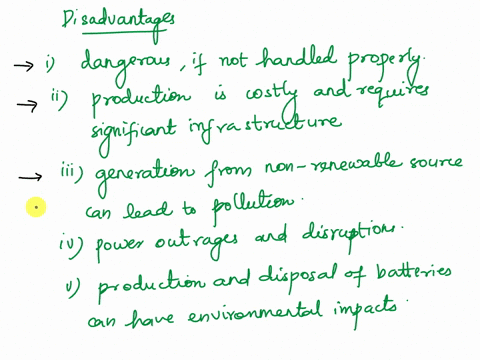 Disadvantages
→ i) dangerous, if not handled properly.
→ ii) production is costly and requires
significant infrastructure
→ iii) generation from non-renewable source
can lead to pollution.
iv) power outrages and disruptions.
v) production and disposal of batteries
can have environmental impacts.